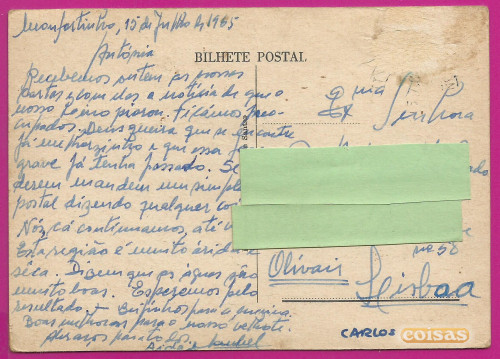 Monfortinho, 15 de Julho de 1965
Antónia
BILHETE POSTAL
Recebemos ontem as vossas
cartas e com elas a notícia de que o
nosso Temo piorou. Ficámos preo-
cupados. Deus queira que se encontre
já melhorzinho e que essa
grave já tenha passado. Se
derem mandem um simples
postal dizendo qualquer coi
Nós, cá continuamos, até
Esta região é muito árida
sêca. Dizem que as águas são
muito boas. Esperemos pelo
resultado. Beijinhos para a menina.
Boas melhoras para o nosso velhote.
Abraços para todos
Exma Senhora
nº 52
Olivais
Lisboa
CARLOS coisas